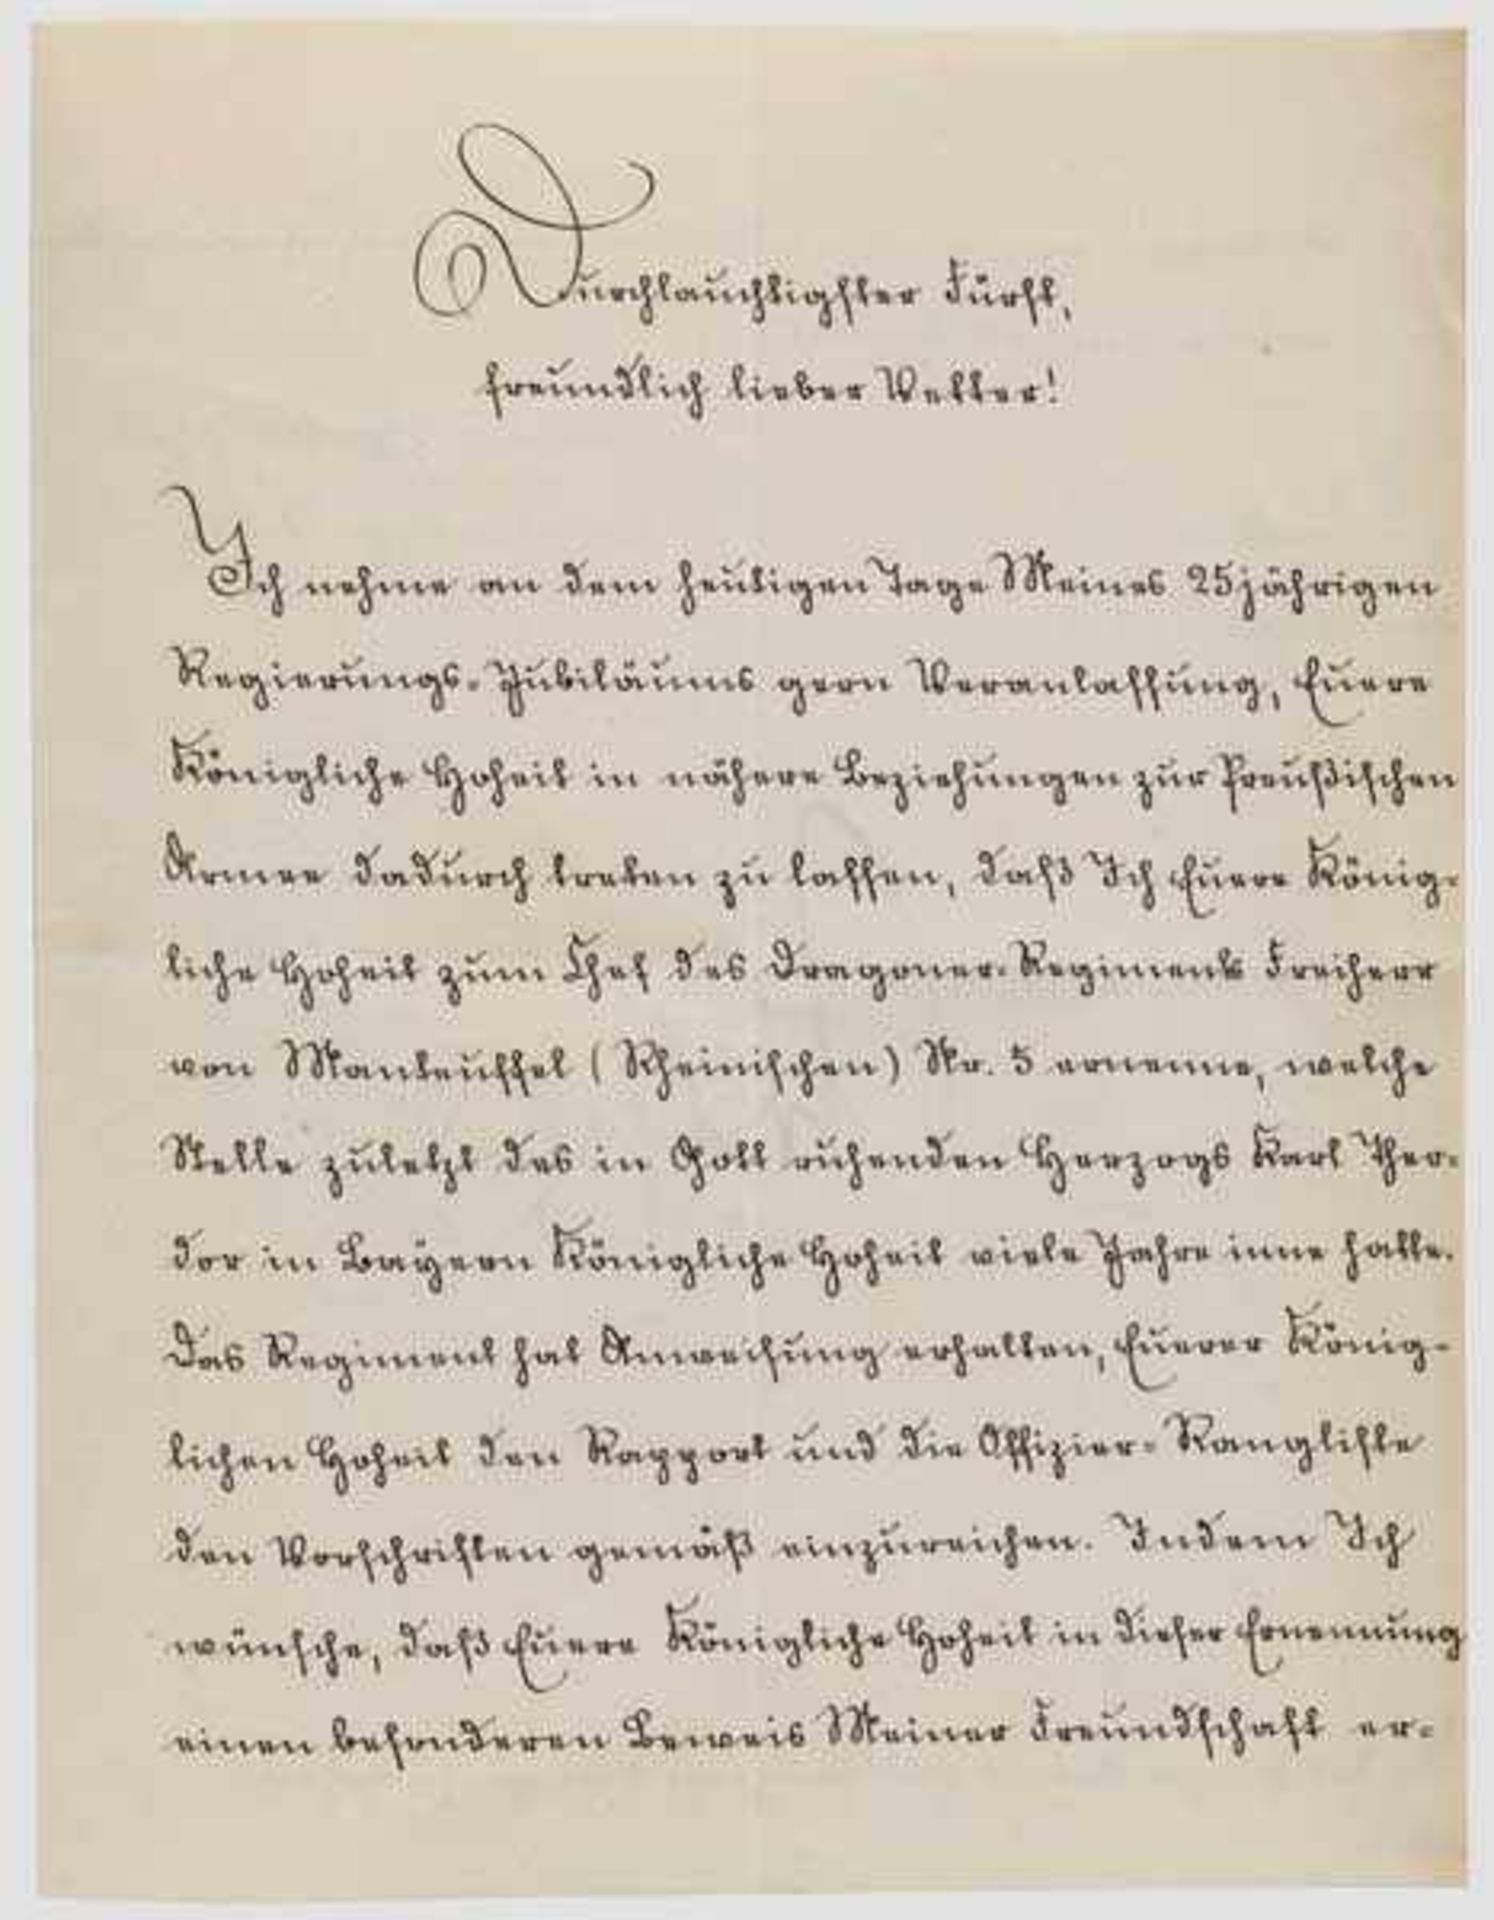 Durchlauchtigster Fürst,
freundlich lieber Vetter!
Ich nehme an dem heutigen Tage Meines 25jährigen
Regierungs-Jubiläums gern Veranlassung, Euere
Königliche Hoheit in nähere Beziehungen zur Preußischen
Armee dadurch treten zu lassen, daß Ich Euere König-
liche Hoheit zum Chef des Dragoner-Regiments Freiherr
von Manteuffel (Rheinischen) Nr. 5 ernenne, welche
Stelle zuletzt des in Gott ruhenden Herzogs Karl Theo-
dor in Bayern Königliche Hoheit viele Jahre inne hatte.
Das Regiment hat Anweisung erhalten, Euerer König-
lichen Hoheit den Rapport und die Offizier-Rangliste
den Vorschriften gemäß einzureichen. Indem Ich
wünsche, daß Euere Königliche Hoheit in dieser Ernennung
einen besonderen Beweis Meiner Freundschaft er-